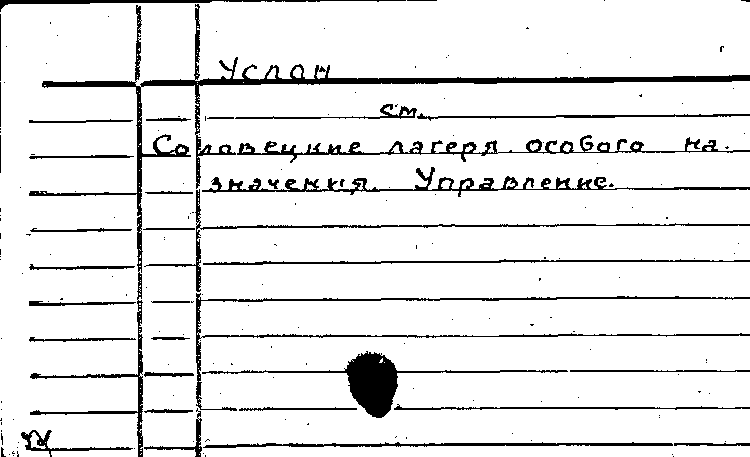 Услон
см.
Соловецкие лагеря особого на-
значения. Управление.